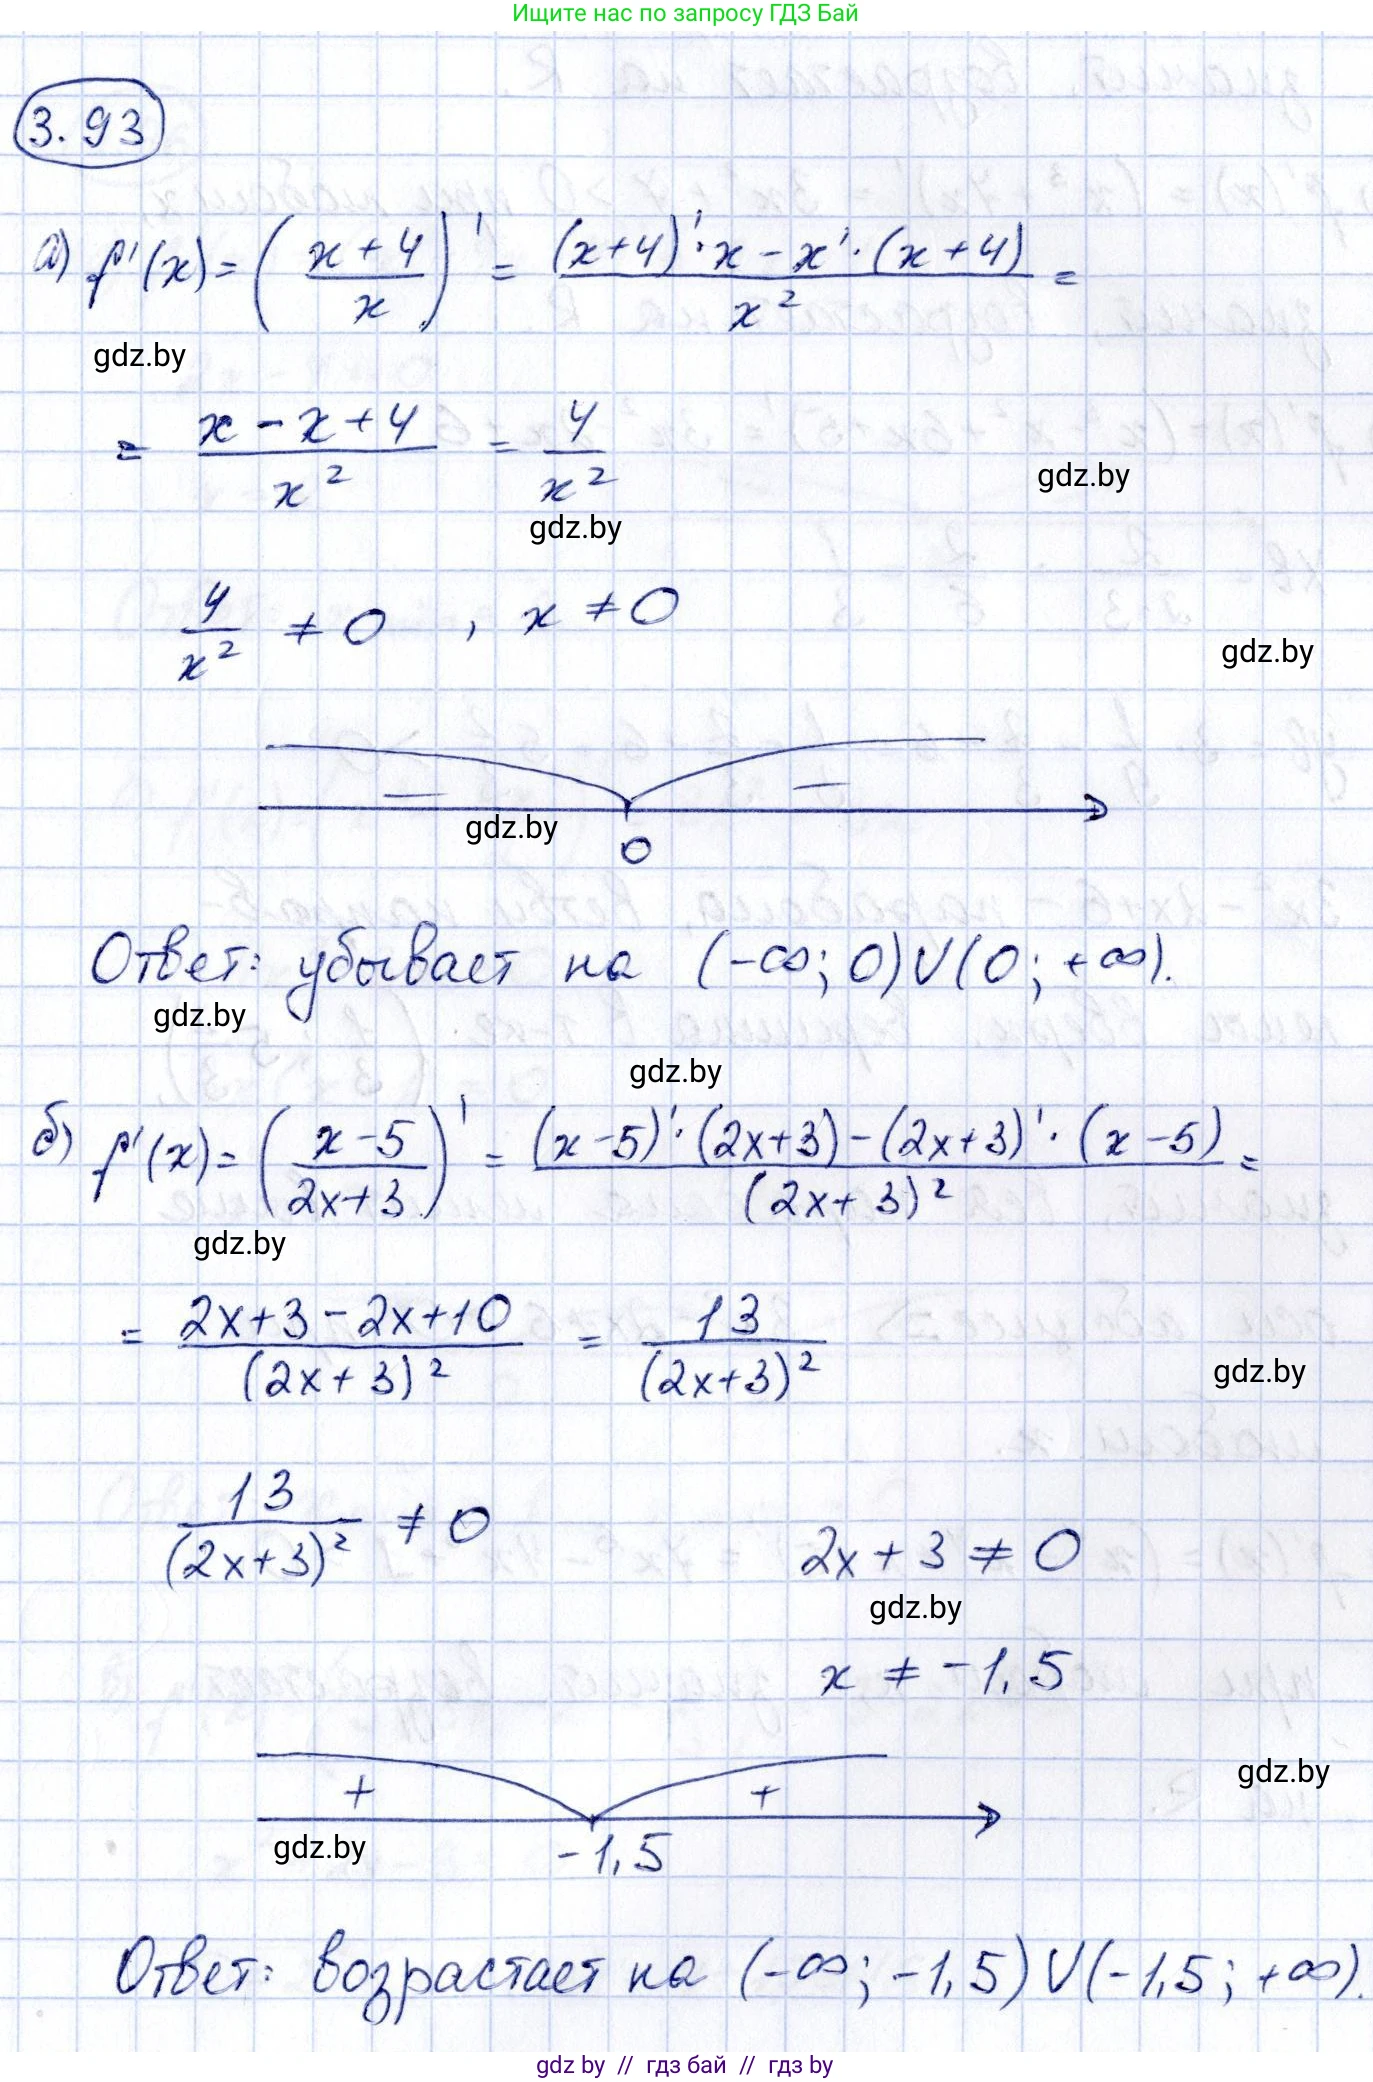 Ищите нас по запросу ГДЗ Бай
3.93
а) f'(x) = ((x+4)/x)' = ((x+4)'·x - x'·(x+4))/x² =
gdz.by
= (x-x+4)/x² = 4/x²
gdz.by
gdz.by
4/x² ≠ 0 , x ≠ 0
gdz.by
− −
gdz.by
0
Ответ: убывает на (-∞; 0)∪(0; +∞).
gdz.by
gdz.by
б) f'(x) = ((x-5)/(2x+3))' = ((x-5)'·(2x+3)-(2x+3)'·(x-5))/(2x+3)² =
gdz.by
= (2x+3-2x+10)/(2x+3)² = 13/(2x+3)²
gdz.by
13/(2x+3)² ≠ 0 2x+3 ≠ 0
gdz.by
x ≠ -1,5
gdz.by
+ +
gdz.by
-1,5
Ответ: возрастает на (-∞; -1,5)∪(-1,5; +∞).
gdz by // гдз бай // гдз by